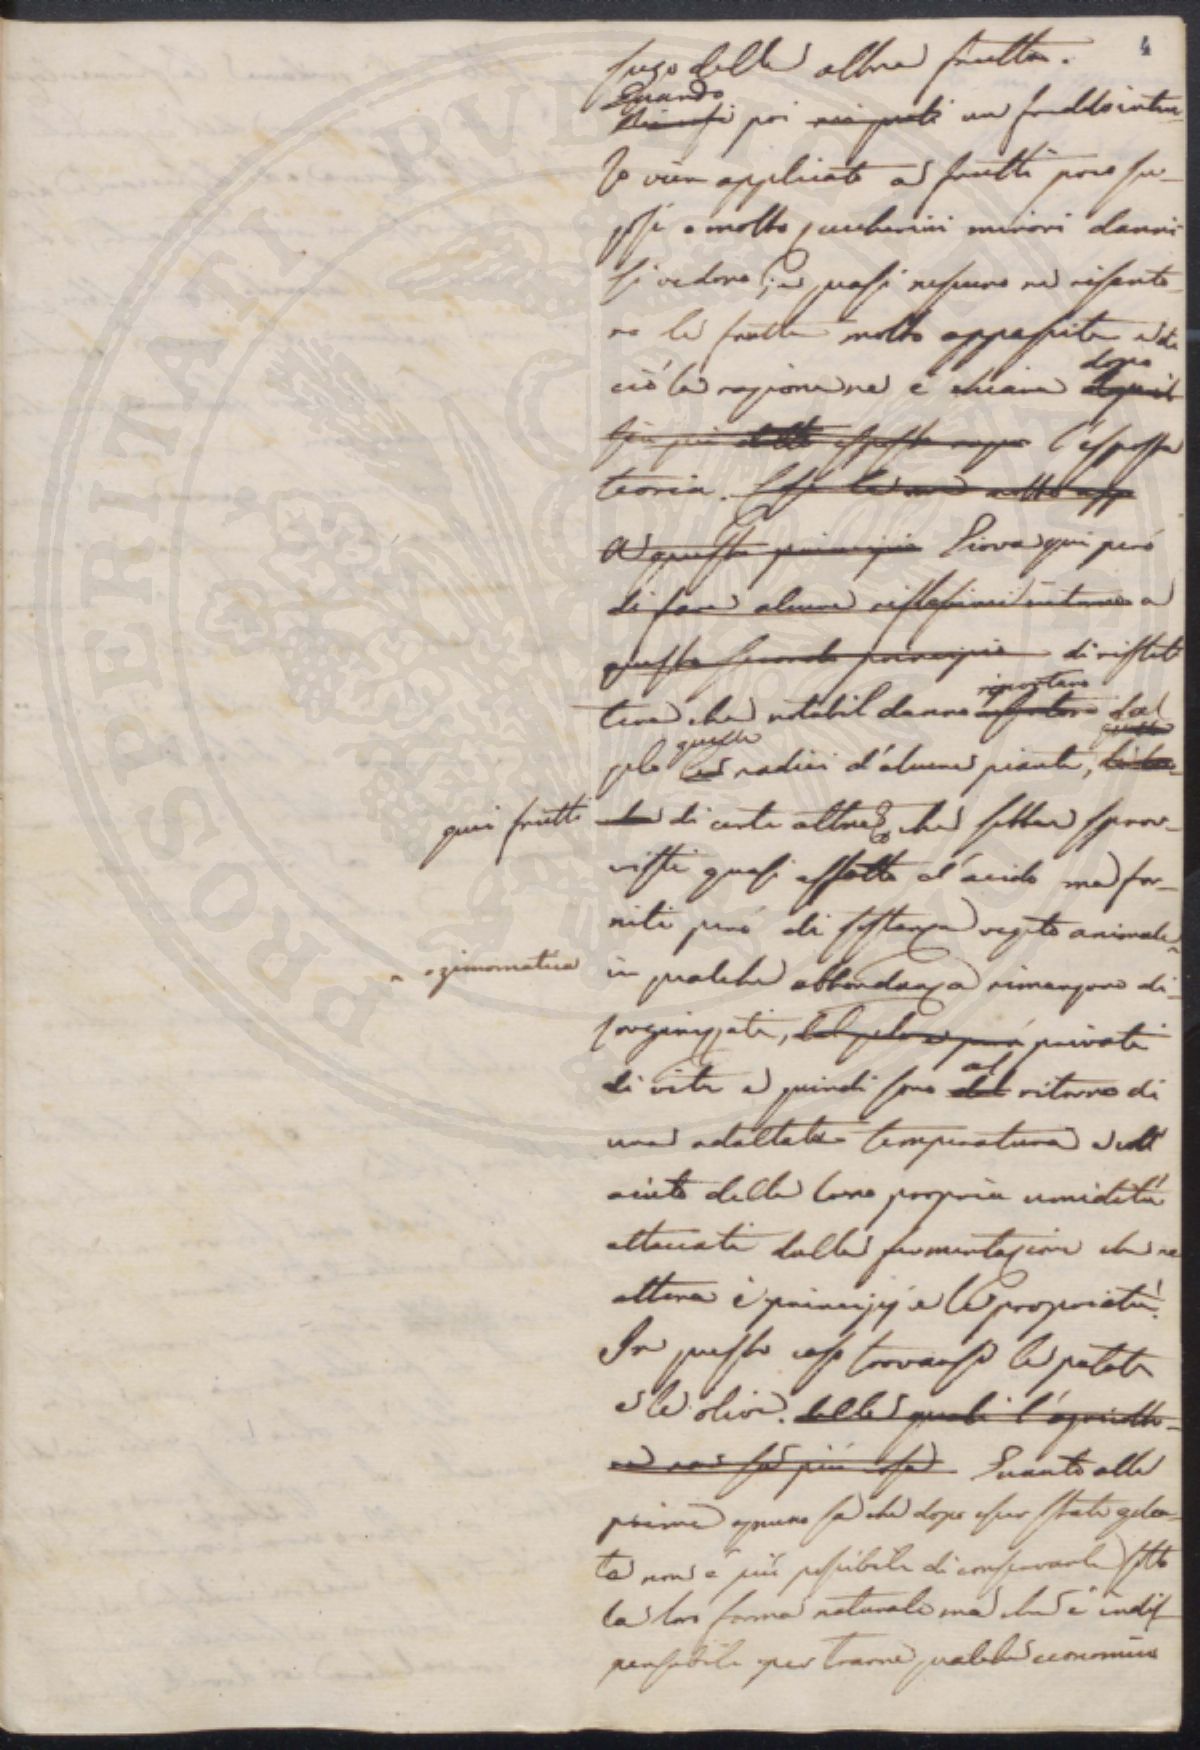 4
sugo delle altre frutta.
Quando
poi un freddo inten-
so vien applicato a frutti poco su-
gosi o molto zuccherini minori danni
si vedono; e quasi nessuno ne risento-
no le frutta molto appassite e di
ciò la ragione ne è chiara dopo
l'esposta
teoria.
A questo principio Giova qui però
di fare alcune riflessioni intorno a
questo secondo principio di riflet
tere che notabil danno riportano dal
gelo quelle radici d'alcune piante,
quei frutti di certe altre che sebben sprov-
visti quasi affatto d'acido ma for-
niti però di sostanza vegeto animale
o zimomatica
in qualche abbondanza rimangono di-
sorganizzati, privati
di vita e quindi sono al ritorno di
una adattata temperatura e coll'
aiuto della loro propria umidità
attaccati dalla fermentazione che ne
altera i principj e le proprietà.
In questo caso trovansi le patate
e le olive. delle quali l'agricolto-
re non sa più cosa Quanto alle
prime ognuno sa che dopo esser state gela-
te non è più possibile di conservarle sotto
la loro forma naturale ma che è indis
pensabile per trarne qualche economico
PROSPERITATI PVBLICAE